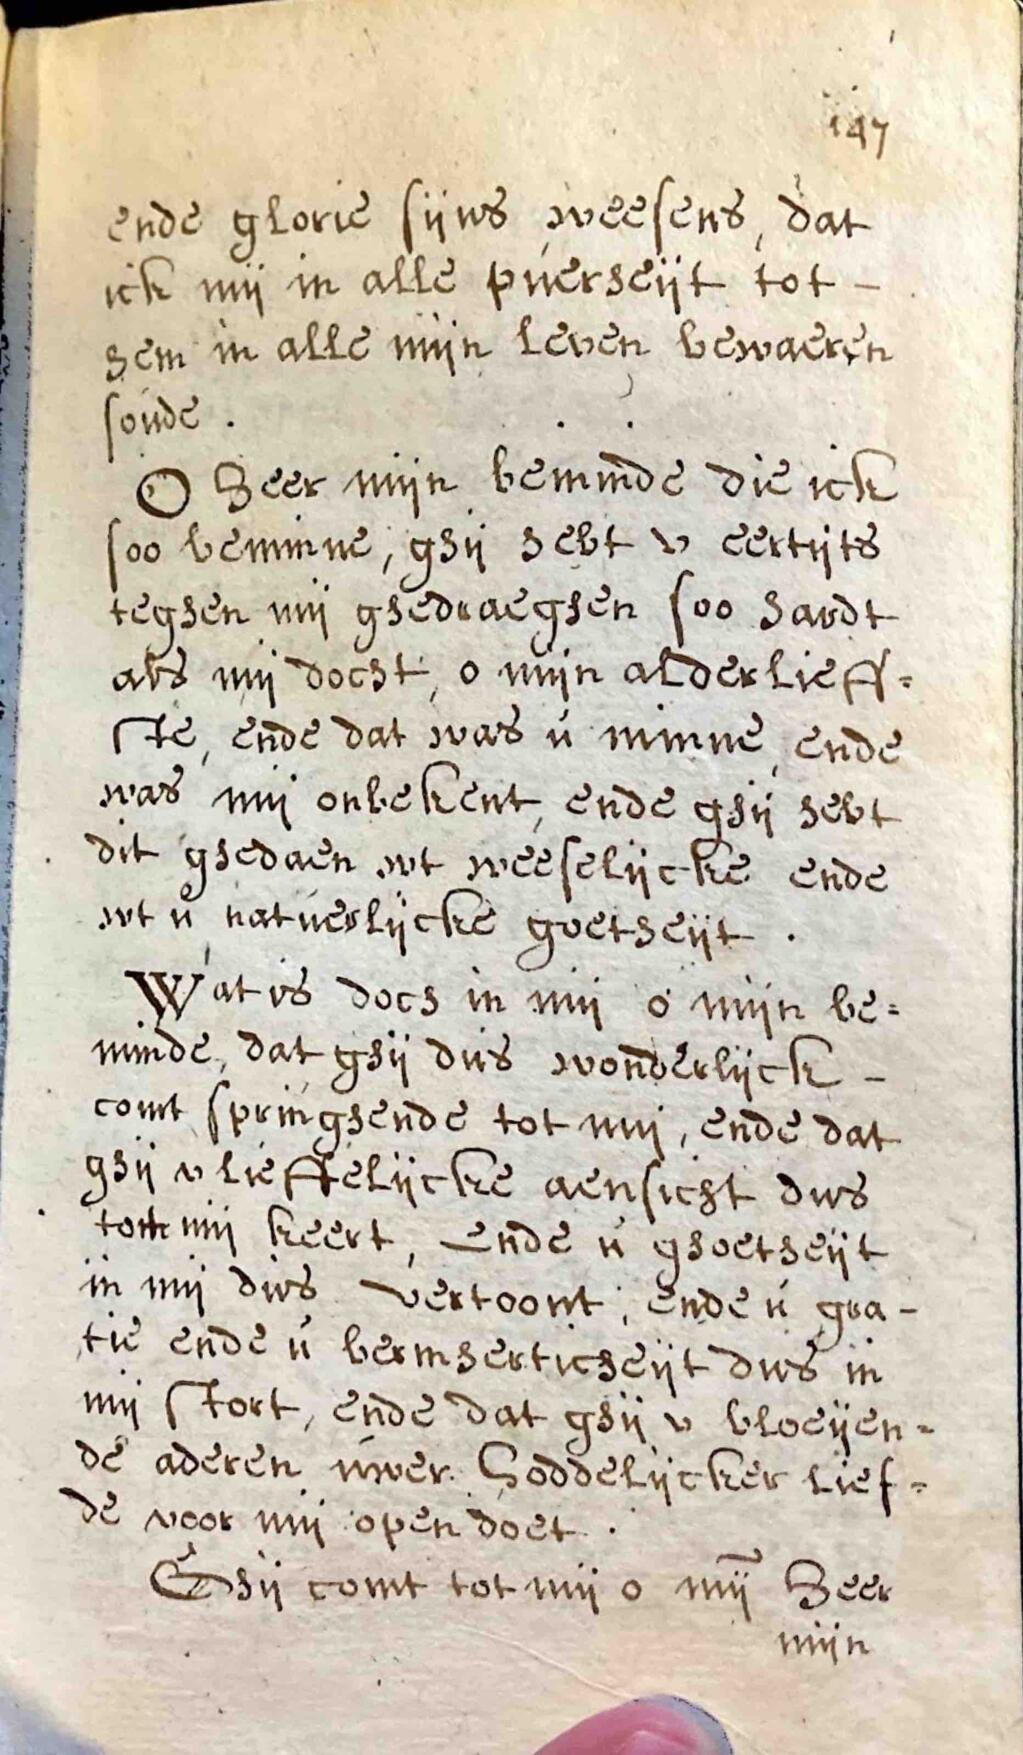 147
ende glorie sijns weesens, dat
ick mij in alle puerheijt tot -
hem in alle mijn leven bewaeren
soude .
O Heer mijn beminde die ick
soo beminne, ghij hebt v eertijts
teghen mij ghedraeghen soo hardt
als mij docht, o mijn alderlieff=
ste, ende dat was ú minne, ende
was mij onbekent, ende ghij hebt
dit ghedaen wt weeselijcke ende
wt ú natuerlijcke goetheijt .
Wat is doch in mij o mijn be=
minde, dat ghij dús wonderlijck -
comt springhende tot mij, ende dat
ghij v lieffelijcke aensicht dus
tott mij keert, ende ú ghoetheijt
in mij dús vertoont, ende ú gra -
tie ende ú bermherticheijt dus in
mij stort, ende dat ghij v bloeijen=
de aderen úwer Goddelijcker lief=
de voor mij open doet .
Ghij comt tot mij o mij̄ Heer
mijn